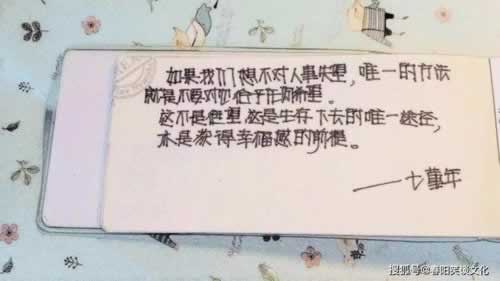 如果我们想不对人事失望，唯一的方法
就是不要对他给予任何希望。
这不是绝望，这是生存下去的唯一途径，
亦是获得幸福感的前提。
——七堇年
搜狐号@春阳笑谈文化